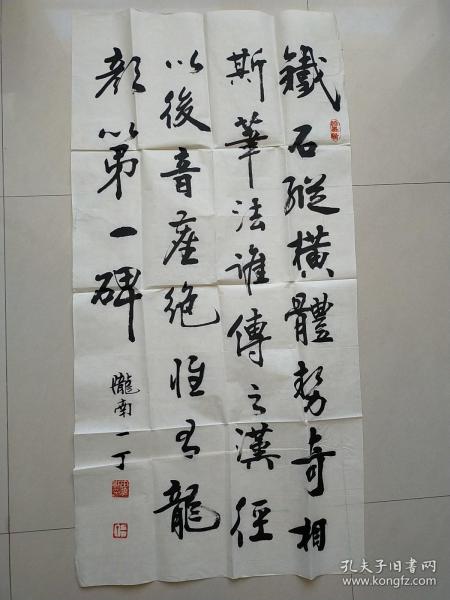 鐵石縱橫體勢奇相
斯筆法誰傳之漢徑
以後音塵絕惟有龍
顏第一碑
隴南一丁
孔夫子旧书网
www.kongfz.com